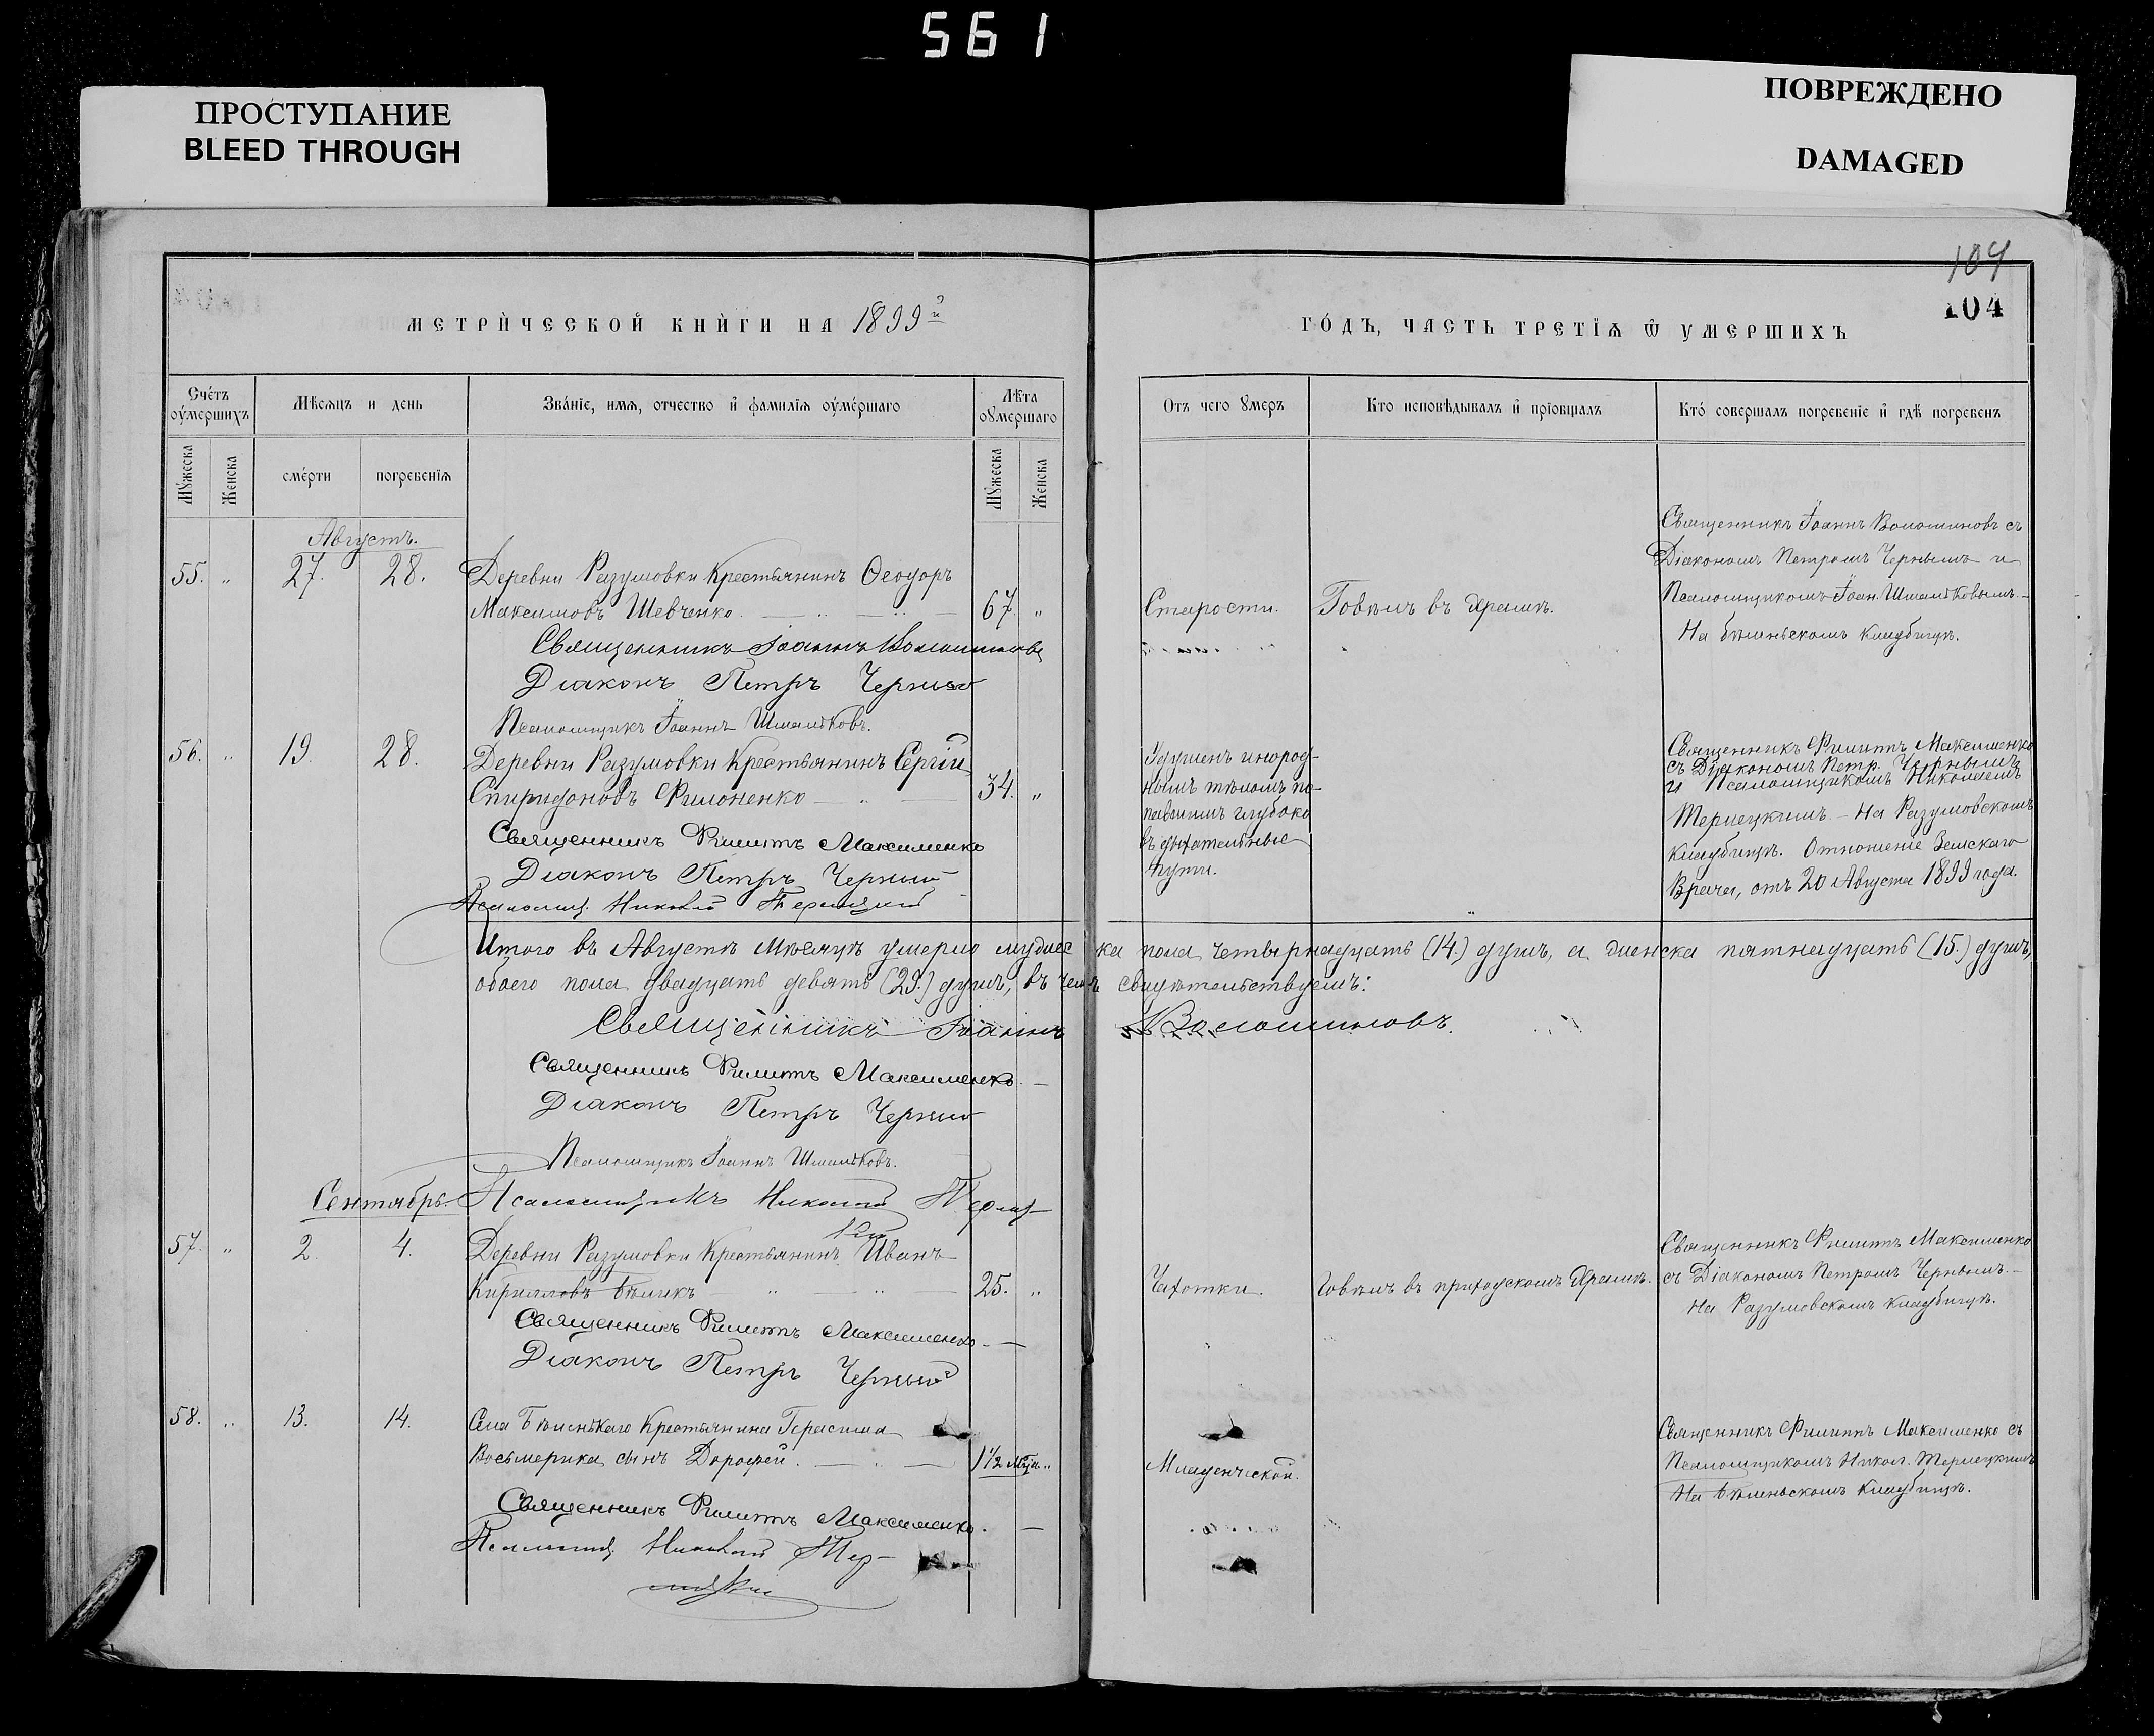 561
ПРОСТУПАНИЕ
BLEED THROUGH
ПОВРЕЖДЕНО
DAMAGED
104
104
МЕТРИ́ЧЕСКОЙ КНИ́ГИ НА 1899й
ГО́ДЪ, ЧАСТЬ ТРЕТЇѦ Ѿ УМЕРШИХЪ
Сче́тъ оумершихъ
Мѣсѧцъ и день
Зва́нїе, имѧ, отчество и фамилїѧ оуме́ршаго
Лѣта оумершаго
Отъ чего умеръ
Кто исповѣдывалъ и прїобщалъ
Кто́ совершалъ погребенїе и гдѣ погребенъ
Мужеска
Женска
сме́рти
погребенїѧ
Мужеска
Женска
Августъ.
55. „ 27. 28. Деревни Разумовки крестьянинъ Ѳеодоръ
Максимовъ Шевченко. 67. „
Старости.
Говѣлъ въ храмѣ.
Священникъ Іоаннъ Волошиновъ съ
Діакономъ Петромъ Чернымъ и
Псаломщикомъ Іоан. Шмальковымъ.
На бѣленьскомъ кладбищѣ.
Священникъ Іоаннъ Волошиновъ
Діаконъ Петръ Черный
Псаломщикъ Іоаннъ Шмальковъ.
56. „ 19. 28. Деревни Разумовки крестьянинъ Сергій
Спиридоновъ Филоненко 34. „
Удушенъ инород-
нымъ тѣломъ по-
павшимъ глубоко
въ дыхательные
пути.
Священникъ Филиппъ Максименко
съ Діакономъ Петр. Чернымъ
и Псаломщикомъ Николаемъ
Терлецкимъ. На Разумовскомъ
кладбищѣ. Отношеніе Земскаго
Врача, отъ 20 Августа 1899 года.
Священникъ Филиппъ Максименко
Діаконъ Петръ Черный
Псаломщ. Николай Терлецкий
Итого въ Августѣ мѣсяцѣ умерло мужеска пола четырнадцать (14.) душъ, а женска пятнадцать (15.) душъ,
обоего пола двадцать девять (29.) душъ, въ чемъ свидѣтельствуемъ:
Священникъ Іоаннъ Волошиновъ.
Священникъ Филиппъ Максименко.
Діаконъ Петръ Черный
Псаломщикъ Іоаннъ Шмальковъ.
Псаломщикъ Николай Терлец-
кий
Сентябрь.
57. „ 2. 4. Деревни Разумовки крестьянинъ Иванъ
Кирилловъ Бѣликъ 25. „
Чахотки.
Говѣлъ въ приходскомъ храмѣ.
Священникъ Филиппъ Максименко
съ Діакономъ Петромъ Чернымъ.
На Разумовскомъ кладбищѣ.
Священникъ Филиппъ Максименко.
Діаконъ Петръ Черный
58. „ 13. 14. Села Бѣленькаго крестьянина Герасима
Восьмерика сынъ Дорофей. 1 1/2 мѣц. „
Младенческой.
Священникъ Филиппъ Максименко съ
Псаломщикомъ Никол. Терлецкимъ
На Бѣленьскомъ кладбищѣ.
Священникъ Филиппъ Максименко.
Псаломщ. Николай Тер-
лецкий